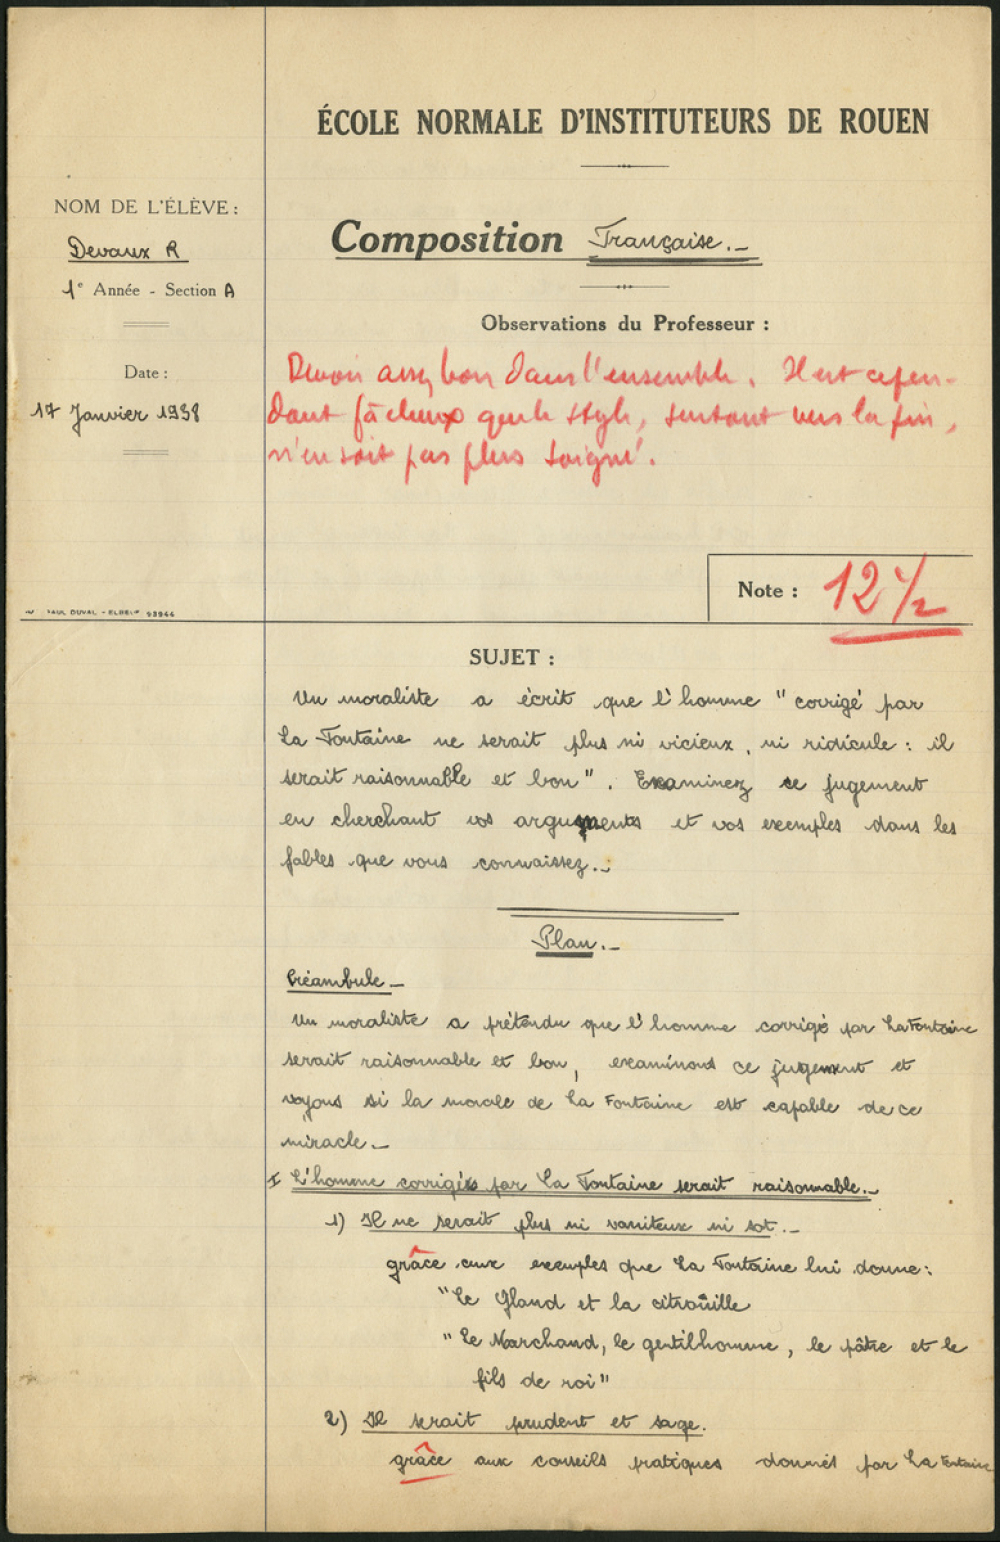 ÉCOLE NORMALE D'INSTITUTEURS DE ROUEN
NOM DE L'ÉLÈVE :
Devaux R
1e Année - Section A
Date :
17 Janvier 1938
Composition Française.-
Observations du Professeur :
Devoir assez bon dans l'ensemble. Il est cepen-
dant fâcheux que le style, surtout vers la fin,
n'en soit pas plus soigné.
Note : 12 1/2
PAUL DUVAL - ELBEUF 93944
SUJET :
Un moraliste a écrit que l'homme "corrigé par
La Fontaine ne serait plus ni vicieux, ni ridicule : il
serait raisonnable et bon". Examinez ce jugement
en cherchant vos arguments et vos exemples dans les
fables que vous connaissez.-
Plan.-
Préambule-
Un moraliste a prétendu que l'homme corrigé par La Fontaine
serait raisonnable et bon, examinons ce jugement et
voyons si la morale de La Fontaine est capable de ce
miracle-
I L'homme corrigé par La Fontaine serait raisonnable.-
1) Il ne serait plus ni vaniteux ni sot.-
grâce aux exemples que La Fontaine lui donne :
"Le Gland et la citrouille
"Le Marchand, le gentilhomme, le pâtre et le
fils de roi"
2) Il serait prudent et sage.
grâce aux conseils pratiques donnés par La Fontaine